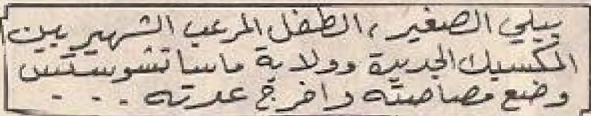 بيلي الصغير، الطفل المرعب الشهير بين
المكسيك الجديدة وولاية ماساتشوستس
وضع مصاصته وافرج عدته . . .